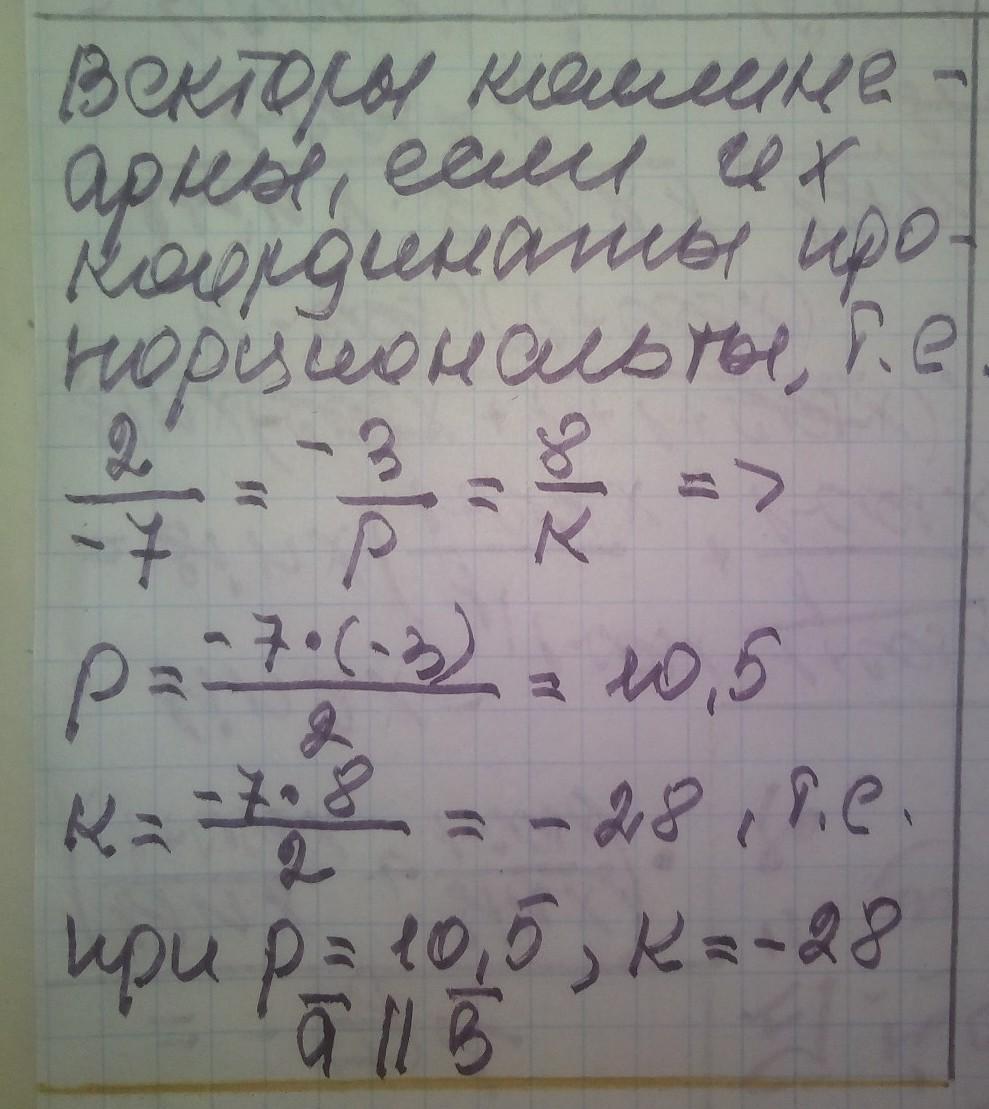 Векторы коллине-
арны, если их
координаты про-
порциональны, т.е.
2/-7 = -3/p = 8/k =>
p = -7·(-3)/2 = 10,5
k = -7·8/2 = -28, т.е.
при p = 10,5, k = -28
a̅ || b̅